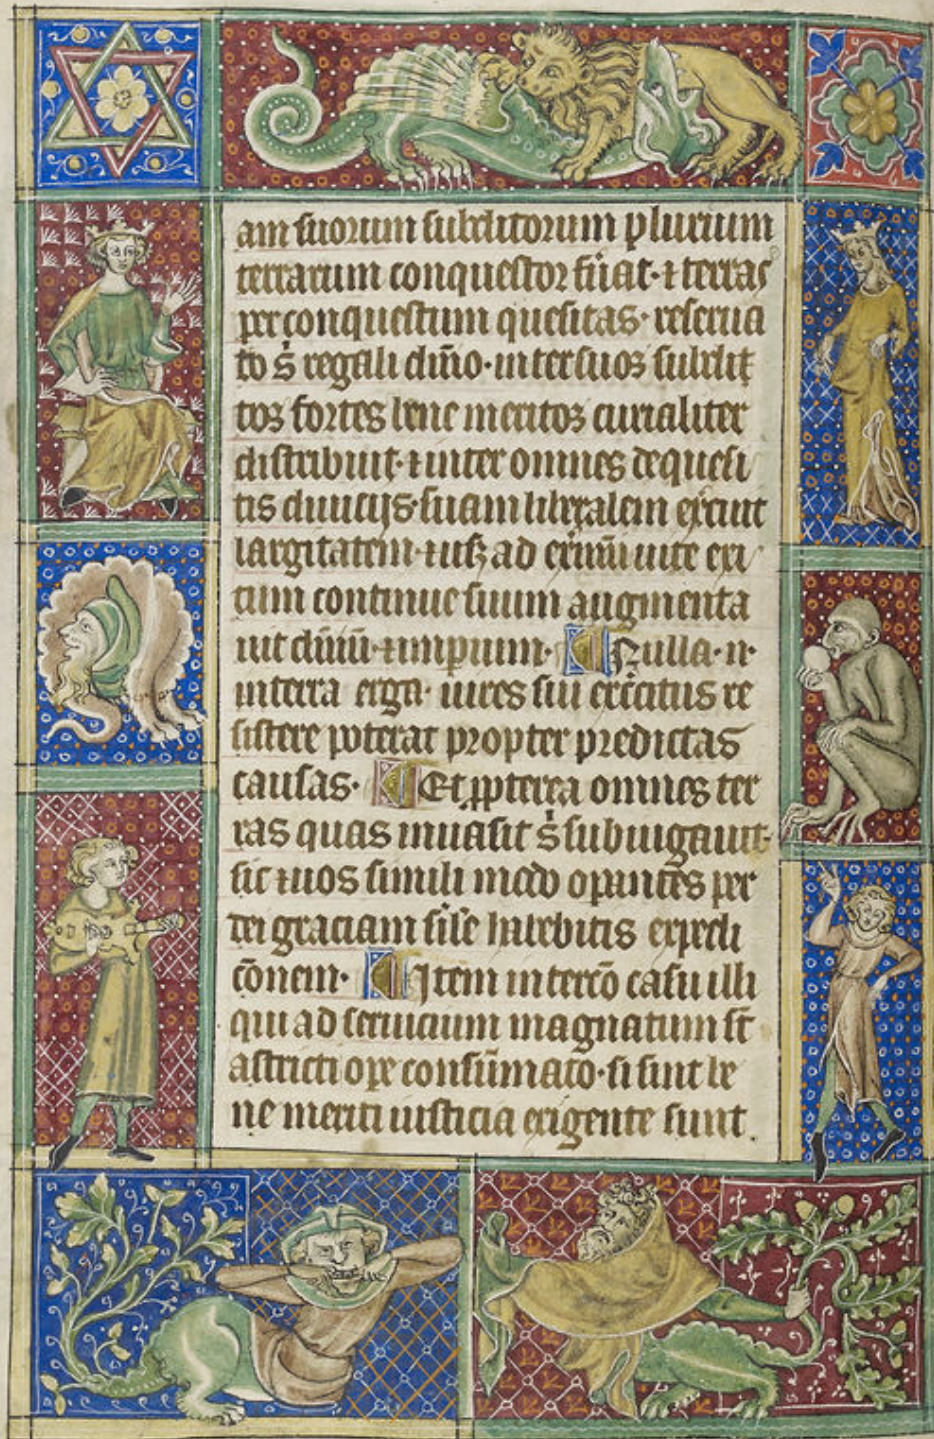 am suorum subditorum plurium
terrarum conquestor fuat · ⁊ terras
per conquestum quesitas · reserua
to s̄ regali dn̄io · inter suos subdit
tos fortes bene meritos curialiter
distribuit · ⁊ inter omnes de quesi
tis diuicijs · suam liberalem ex̄cuit
largitatem · ⁊ usqꝫ ad ex̄mū uite exi
tum continue suum augmenta
uit dn̄iū ⁊ imperium · Nulla · n̄ ·
in terra erga · uires sui exc̄itus re
sistere poterat propter predictas
causas · Et ꝓpterea omnes ter
ras quas inuasit s̄ subiugauit ·
sic ⁊ uos simili modo operantes per
dei graciam sil̄e habebitis expedi
cōnem · Item in tercō casu illi
qui ad seruicium magnatum st̄
astricti oꝑe consūmato · si sint be
ne meriti iusticia exigente sunt